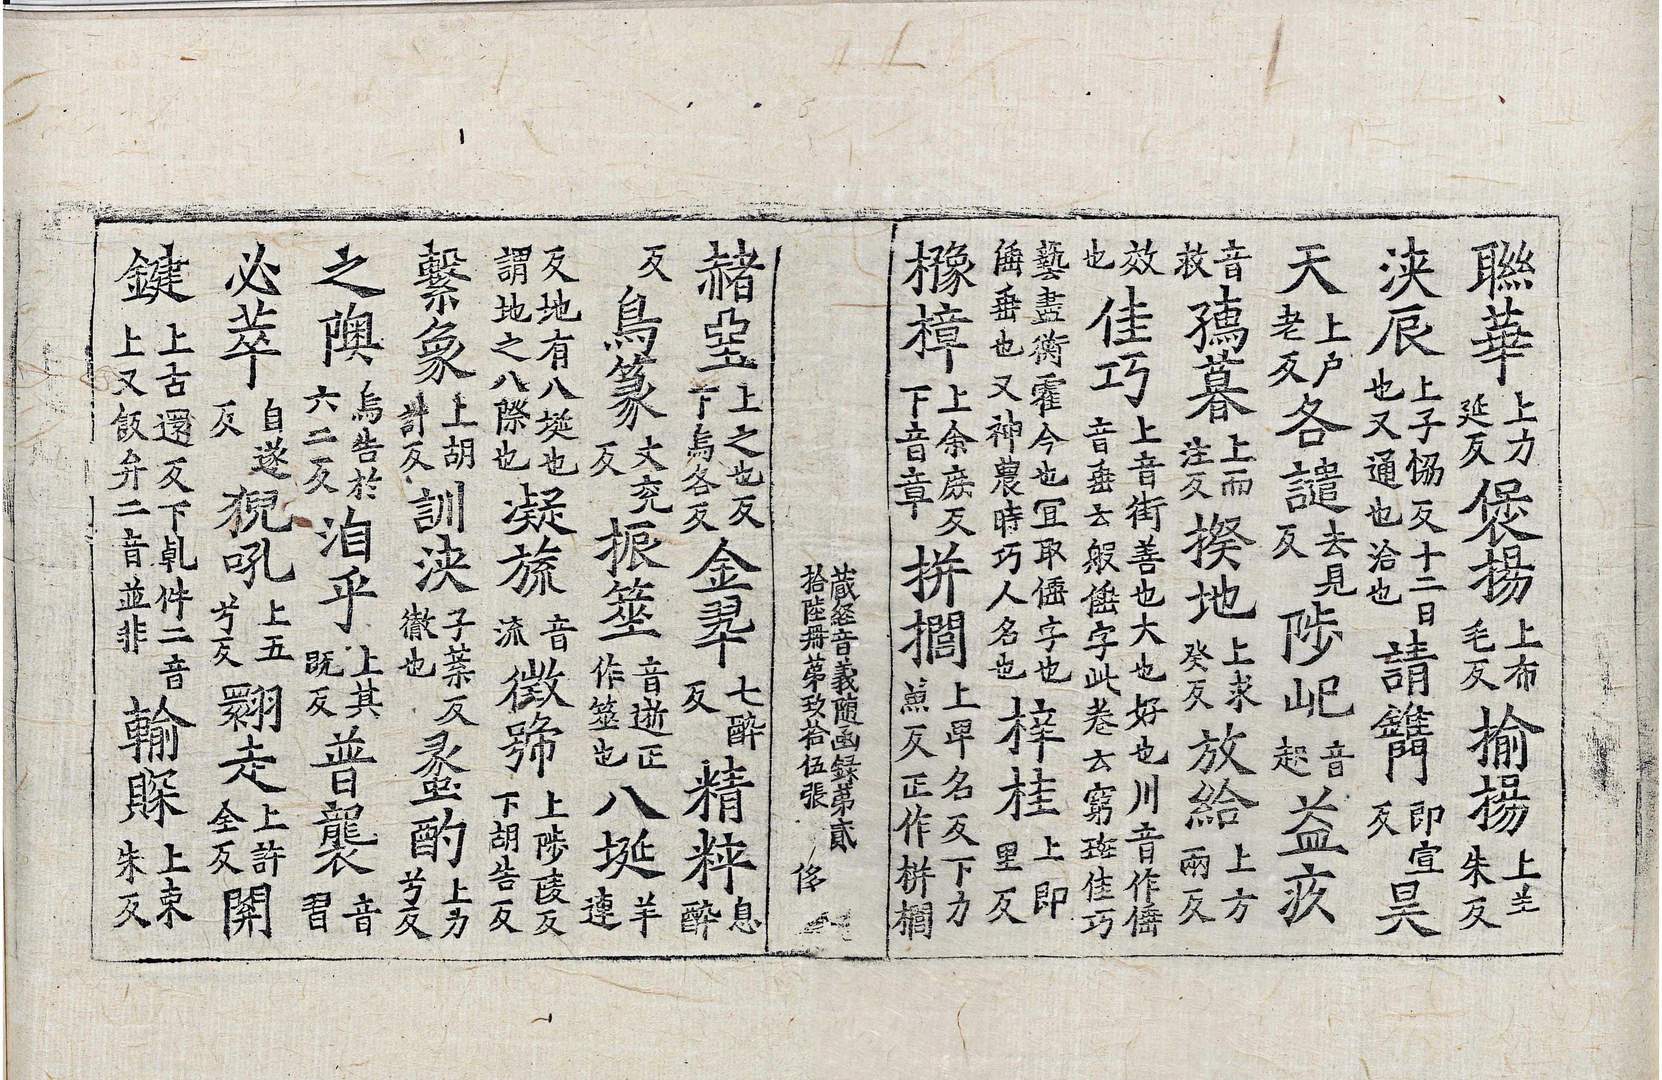 聯華上力延反煲揚上布毛反揄揚上羊朱反
浹辰上子恊反十二日也又通也洽也請鐫即宣反昊
天上戶老反各譴去見反陟屺音起益疚
音救孺慕上而注反揆地上求癸反放給上方兩反
效也佳巧上音街善也大也好也川音作倕音垂去般倕字此卷云窮班佳巧
藝盡衡霍今也冝取倕字也倕垂也又神農時巧人名也梓桂上即里反
櫲樟上余庶反下音章拼櫚上卑名反下力蕉反正作栟櫚
藏經音義隨函錄第貳拾陸冊第玖拾伍張 侈
赭堊上之也反下烏各反金翠七醉反精粹息醉
反鳥篆丈兖反振筮音逝正作筮也八埏羊連
反地有八埏也謂地之八際也凝旒音流徵號上陟陵反下胡告反
繫象上胡計反訓浹子葉反徹也蠡酌上力兮反
之隩烏告於六二反洎乎上其既反普襲音習
必萃自遂反猊吼上五兮反翾走上許全反關
鍵上古還反下乹件二音上又飯弁二音並非輸賝上束朱反